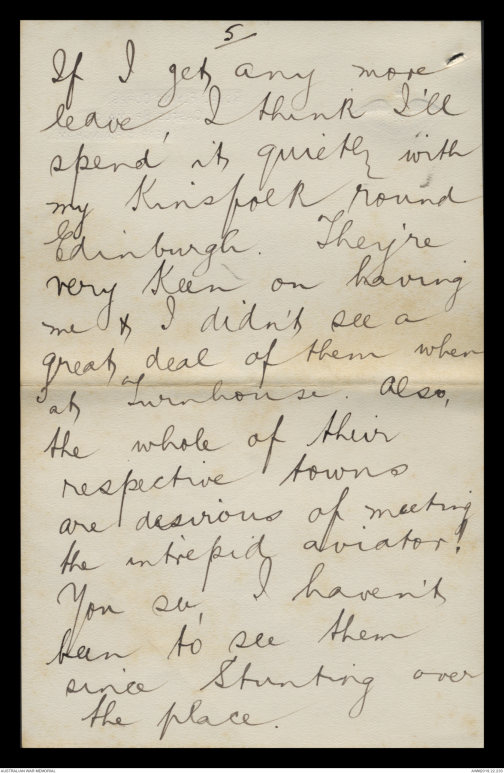 5
If I get any more
leave, I think I'll
spend it quietly with
my Kinsfolk round
Edinburgh. They're
very Keen on having
me & I didn't see a
great deal of them when
at Turnhouse. Also,
the whole of their
respective towns
are desirous of meeting
the intrepid aviator!
You see, I haven't
been to see them
since Stunting over
the place.
AUSTRALIAN WAR MEMORIAL